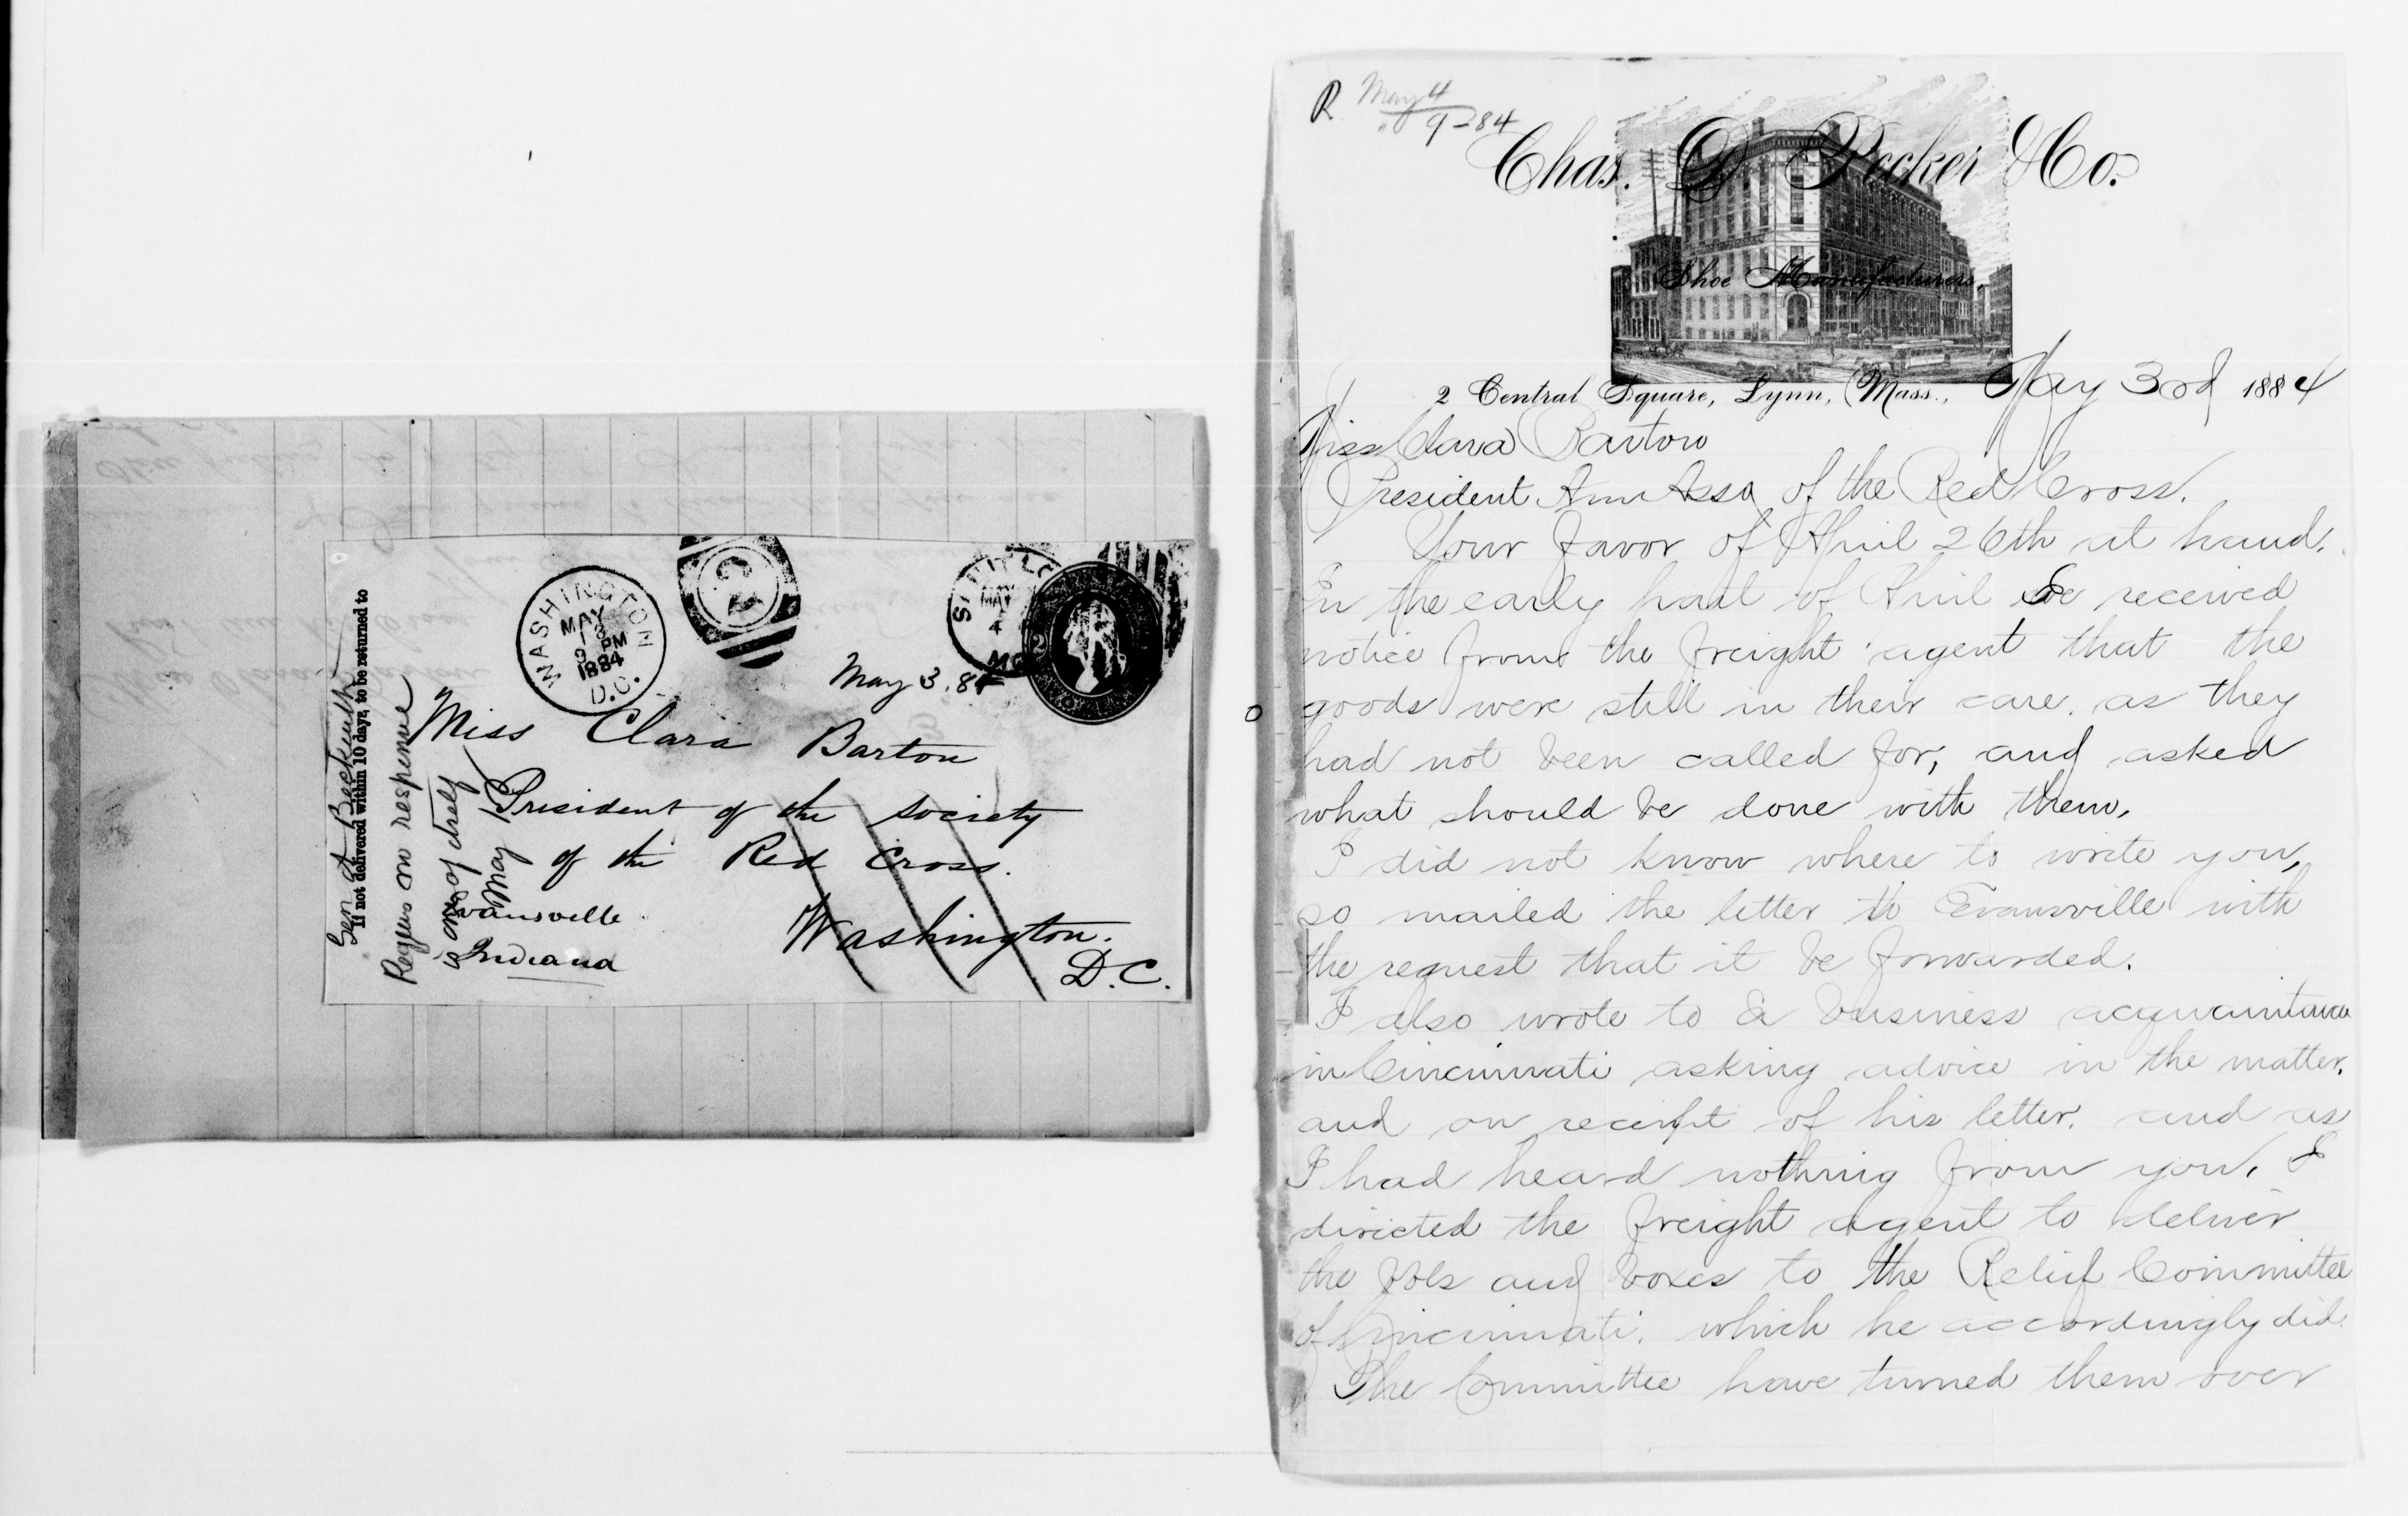 WASHINGTON
MAY
18
9 PM
1884
D.C.
2
SAINT LO
MAY
4
MO
May 3. 84
Miss Clara Barton
President of the Society
of the Red Cross.
Washington.
D.C.
Evansville
Indiana
If not delivered within 10 days, to be returned to
Gen A Beckwith
on response
May
R May 4
" 9-84
Chas. D Pecker & Co.
Shoe Manufacturers,
2 Central Square, Lynn, Mass., May 3rd 1884
Miss Clara Barton
President Am Asso of the Red Cross.
Your favor of April 26th at hand.
In the early part of April we received
notice from the freight agent that the
goods were still in their care, as they
had not been called for, and asked
what should be done with them.
I did not know where to write you,
so mailed the letter to Evansville with
the request that it be forwarded.
I also wrote to a business acquaintance
in Cincinnati asking advice in the matter,
and on receipt of his letter, and as
I had heard nothing from you, I
directed the freight agent to deliver
the bbls and boxes to the Relief Committee
of Cincinnati, which he accordingly did.
The Committee have turned them over